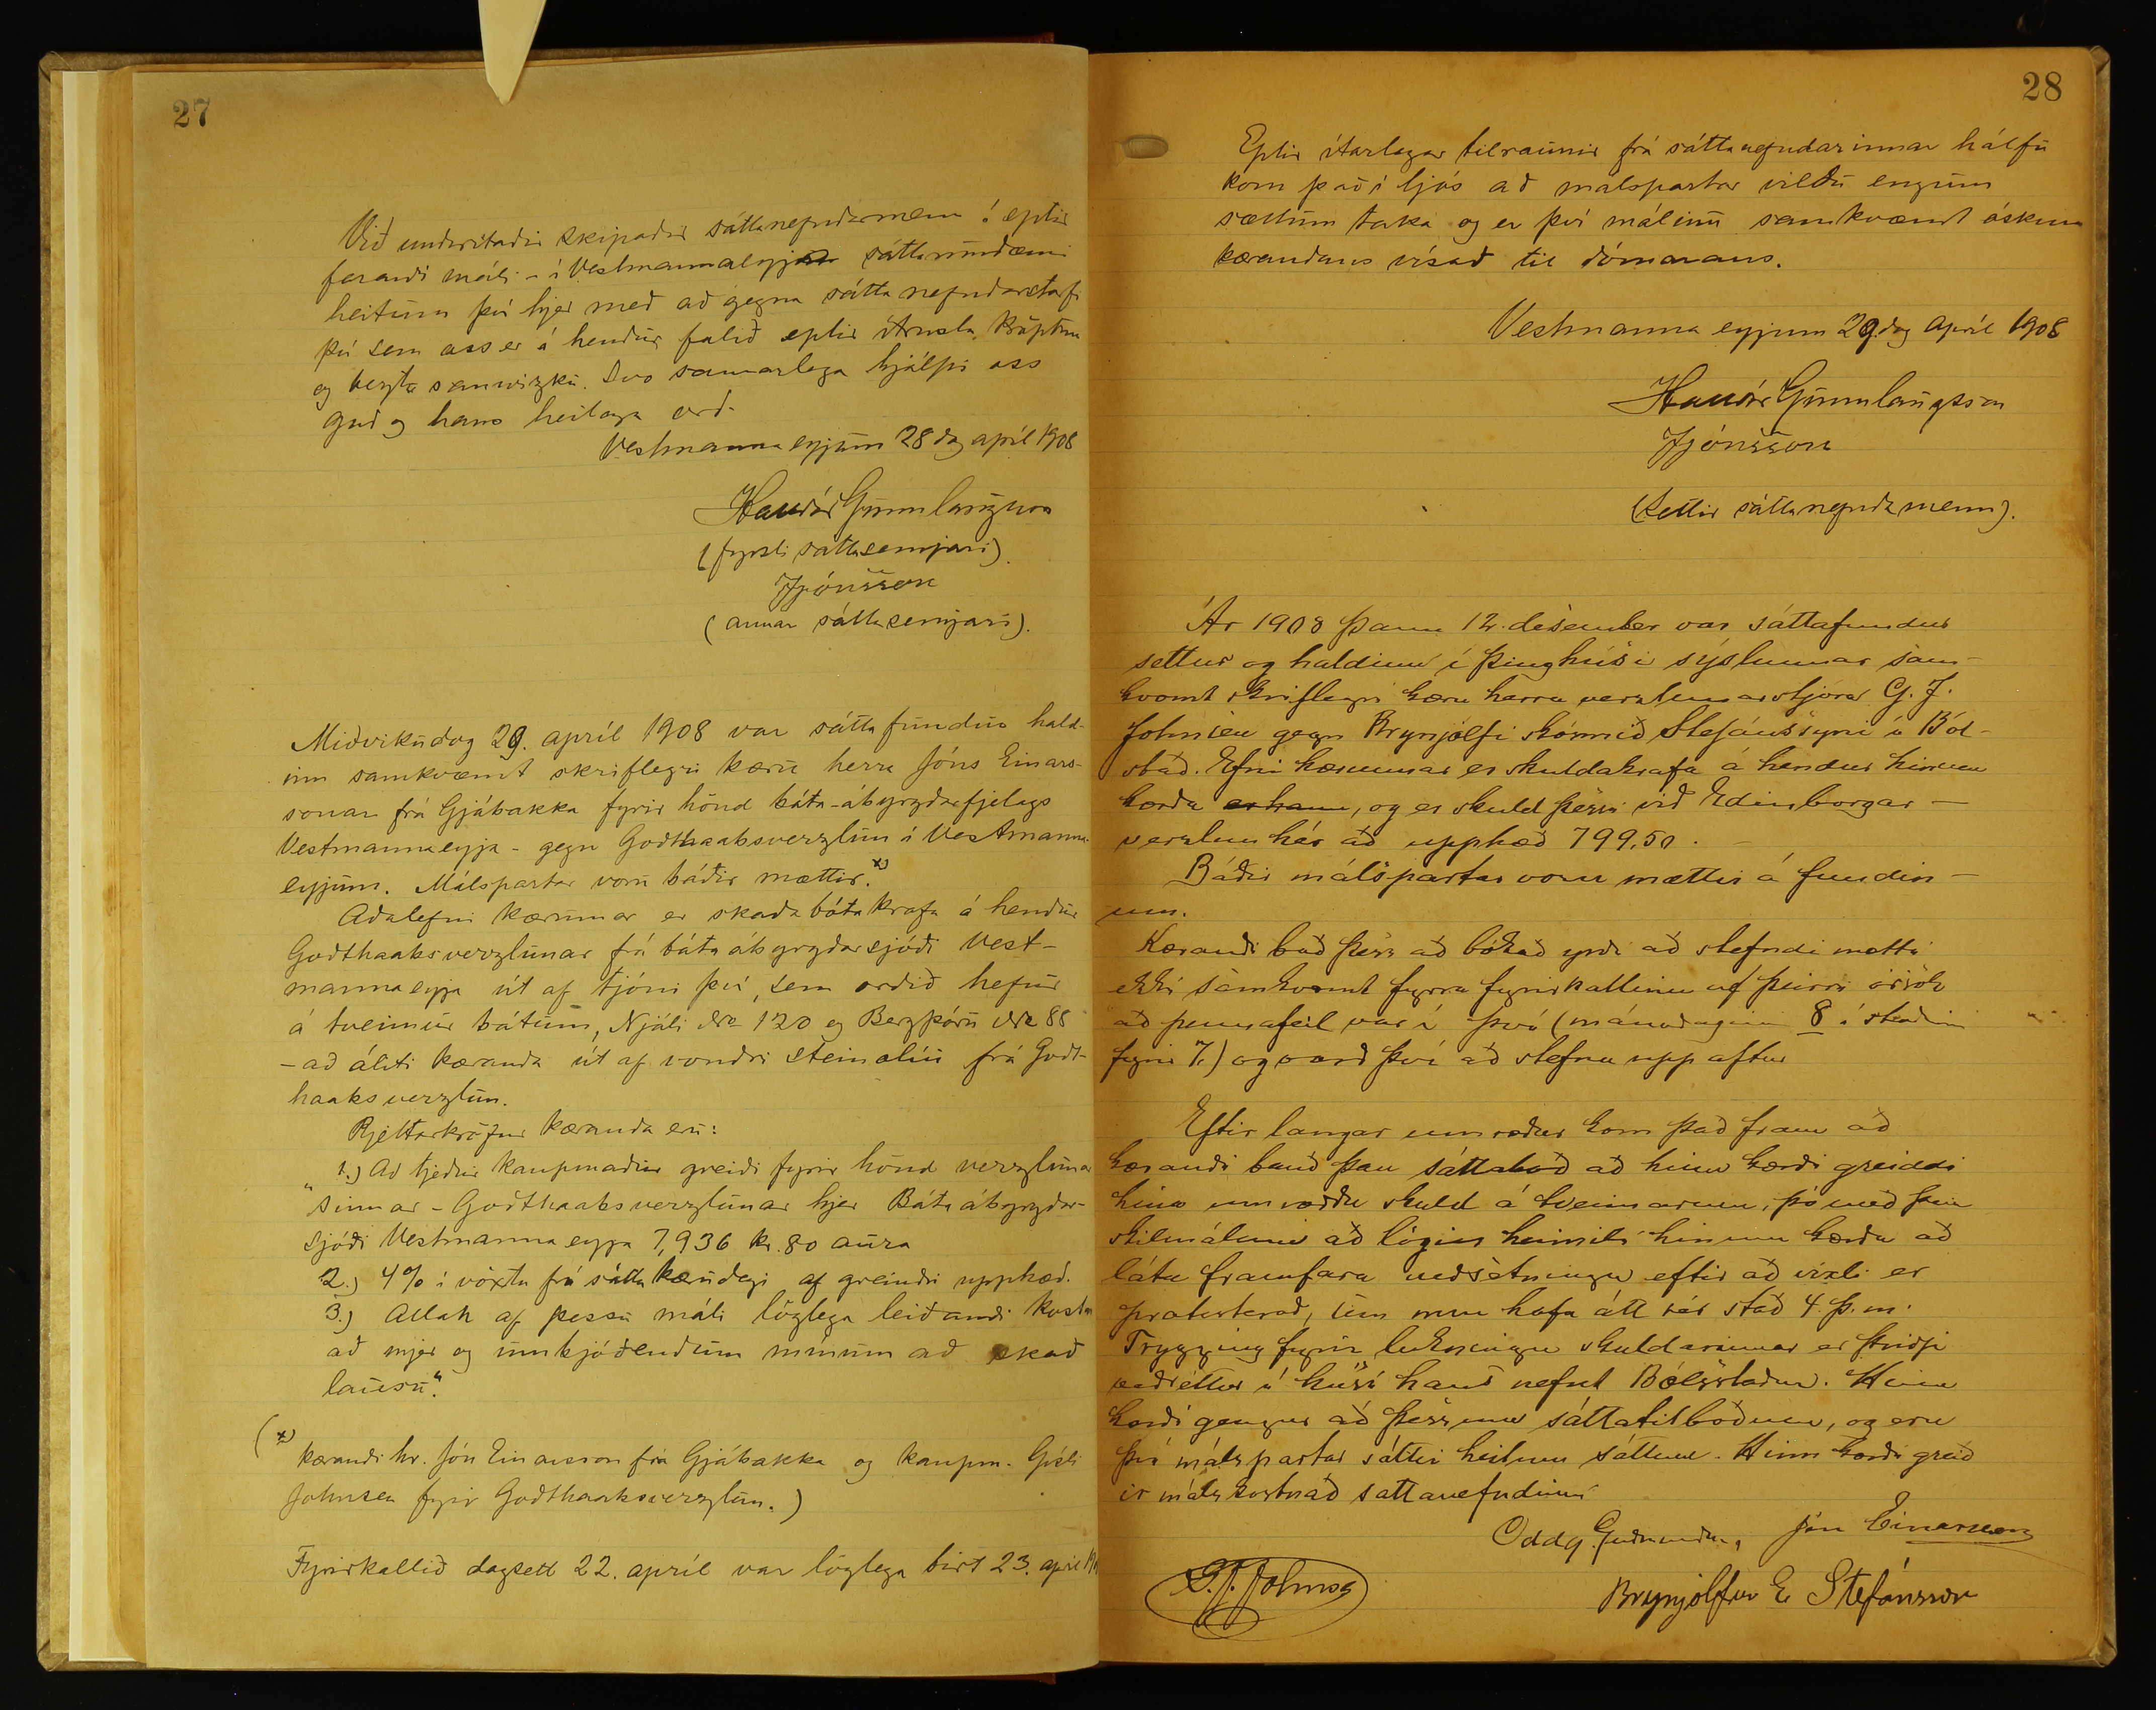 27
Við undirritaðir skipaðir sáttanefndarmenn í eptir
farandi máli - í Vestmannaeyja sáttaumdæmi
heitum því hjer með að gegna sáttanefndarstarfi
því sem oss er á hendur falið eptir ítrustu kröptum
og beztu samvizku. Svo sannarlega hjálpi oss
guð og hans heilaga orð.
Vestmannaeyjum 28 dag apríl 1908
Halldór Gunnlaugsson
(fyrsti sáttasemjari).
JJónsson
(annar sáttasemjari).
Miðvikudag 29. apríl 1908 var sáttafundur hald-
inn samkvæmt skriflegri kæru herra Jóns Einars-
sonar frá Gjábakka fyrir hönd báta-ábyrgðarfjelags
Vestmannaeyja - gegn Godthaabsverzlun í Vestmanna-
eyjum. Málspartar voru báðir mættir. x)
Aðalefni kærunnar er skaðabótakrafa á hendur
Godthaabsverzlunar frá bátaábyrgðarsjóði Vest-
mannaeyja út af tjóni því, sem orðið hefur
á tveimur bátum, Njáli No 120 og Bergþóru No 88
- að áliti kæranda út af vondri steinolíu frá Godt-
haabsverzlun.
Rjettarkröfur kæranda eru:
„1.) Að tjeður kaupmaður greiði fyrir hönd verzlunar
sinnar - Godthaabsverzlunar hjer Bátaábyrgðar-
sjóði Vestmannaeyja 7,936 kr. 80 aura
2.) 4% í vöxtu frá sáttakærudegi af greindri upphæð.
3.) Allan af þessu máli löglega leiðandi kostn
að mjer og umbjóðendum mínum að skað
lausu".
(x) kærandi hr. Jón Einarsson frá Gjábakka og kaupm. Gísli
Johnsen fyrir Godthaabsverzlun.)
Fyrirkallið dagsett 22. apríl var löglega birt 23. apríl
28
Eptir ítarlegar tilraunir frá sáttanefndarinnar hálfu
kom það í ljós að málspartar vildu engum
sættum taka og er því málinu samkvæmt óskum
kærandans vísað til dómarans.
Vestmannaeyjum 29. dag apríl 1908
Halldór Gunnlaugsson
JJónsson
(Settir sáttanefndamenn).
Ár 1908 þann 12. desember var sáttafundur
settur og haldinn í þinghúsi sýslunnar sam-
kvæmt skriflegri kæru herra verzlunarstjóra G. J.
Johnsen gegn Brynjólfi skósmið Stefánssyni á Ból-
stað. Efni kærunnar er skuldakrafa á hendur hinum
kærða er hann, og er skuld þessi við Edinborgar-
verzlun hér að upphæð 799,50.
Báðir málspartar voru mættir á fundin-
um.
Kærandi bað þess að bókað yrði að stefndi mætti
ekki samkvæmt fyrra fyrirkallinu af þeirri orsök
að pennafeil var í því (mánaðaginn 8 í staðinn
fyrir 7.) og varð því að stefna upp aftur
Eftir langar umræður kom það fram að
kærandi bauð þau sáttaboð að hinn kærði greiddi
hina umræddu skuld á tveim árum, þó með þeim
skilmálum að lögin heimili hinum kærða að
láta framfara veðsetningu eftir að víxli er
protesterað, sem mun hafa átt sér stað 4. þ.m.
Trygging fyrir lukningu skuldarinnar er þriðji
veðréttur í húsi hans nefnt Bólsstaður. Hinn
kærði gengur að þessum sáttatilboðum, og eru
því málspartar sáttir heilum sáttum. Hinn kærði greið
ir málskostnað sáttanefndinni
Oddg. Guðmundss. Jón Einarsson
G. J. Johnsen
Brynjólfur E Stefánsson